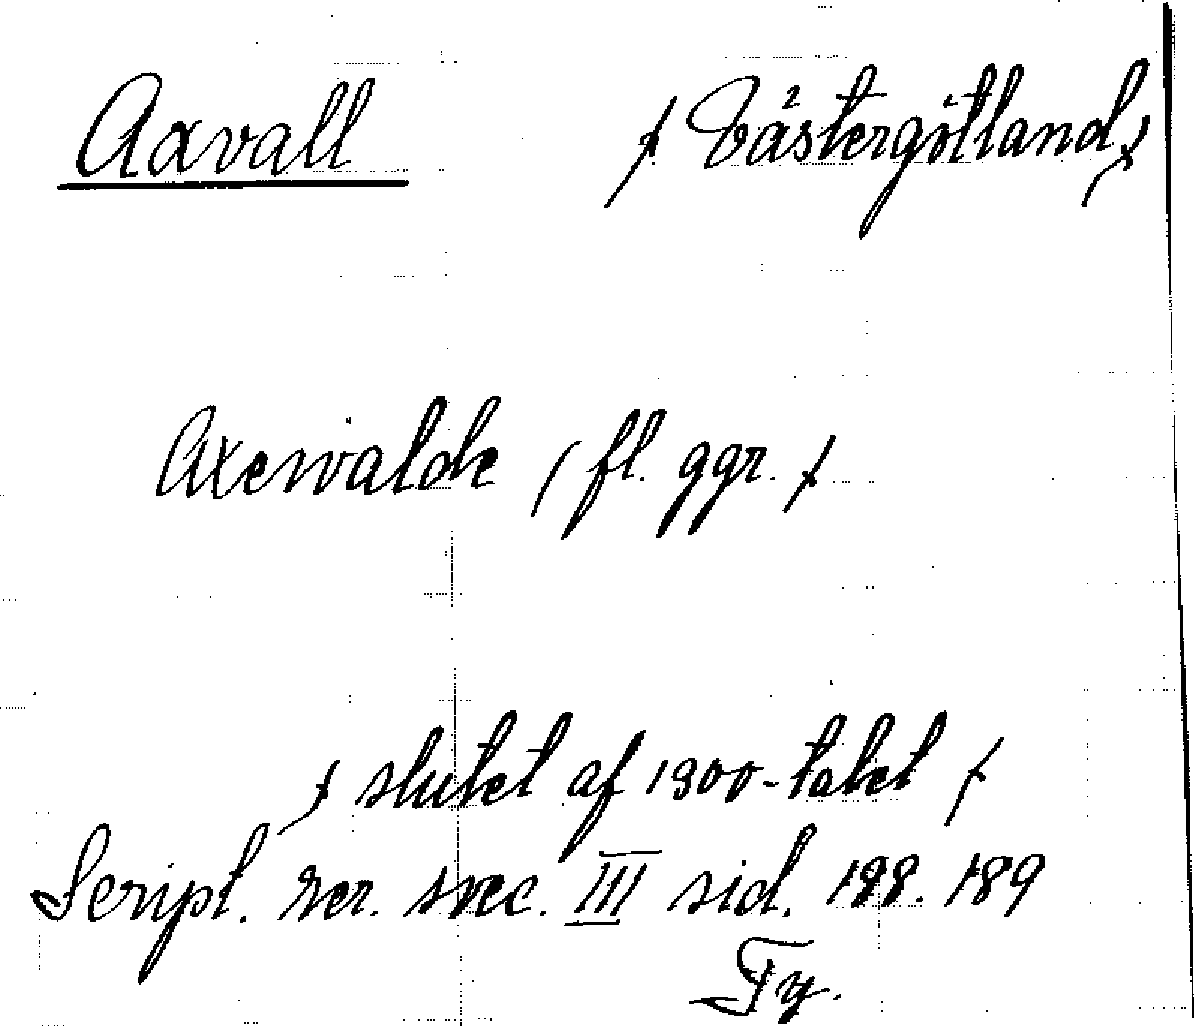 Axvall / Västergötland /
Axewalde / fl. ggr. /
/ slutet af 1300-talet /
Script. rer. svec. III sid. 188. 189
Ty.